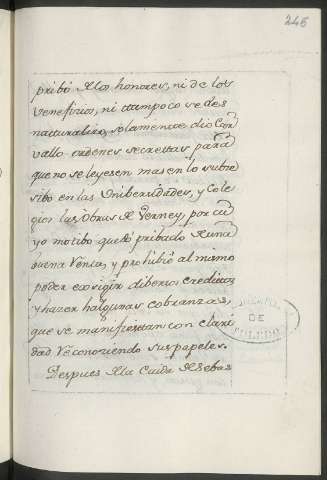 246
pribó A los honores, ni de los
veneficios, ni ttampoco se des
natturalizo, solamente dio Car
vallo ordenes secrettas para
que no se leyesen mas en lo subse
sibo en las Unibersidades, y Cole
gios las Obras de Perney, por cu
yo motibo quedó pribado de una
buena Renta, y prohibió al mismo
poder exsigir diberso creditos,
y hazer halgunas cobranzas,
que se manifiestan con clari
dad reconoziendo sus papeles.
Despues de la Caida de Sebas
DE
TOLEDO